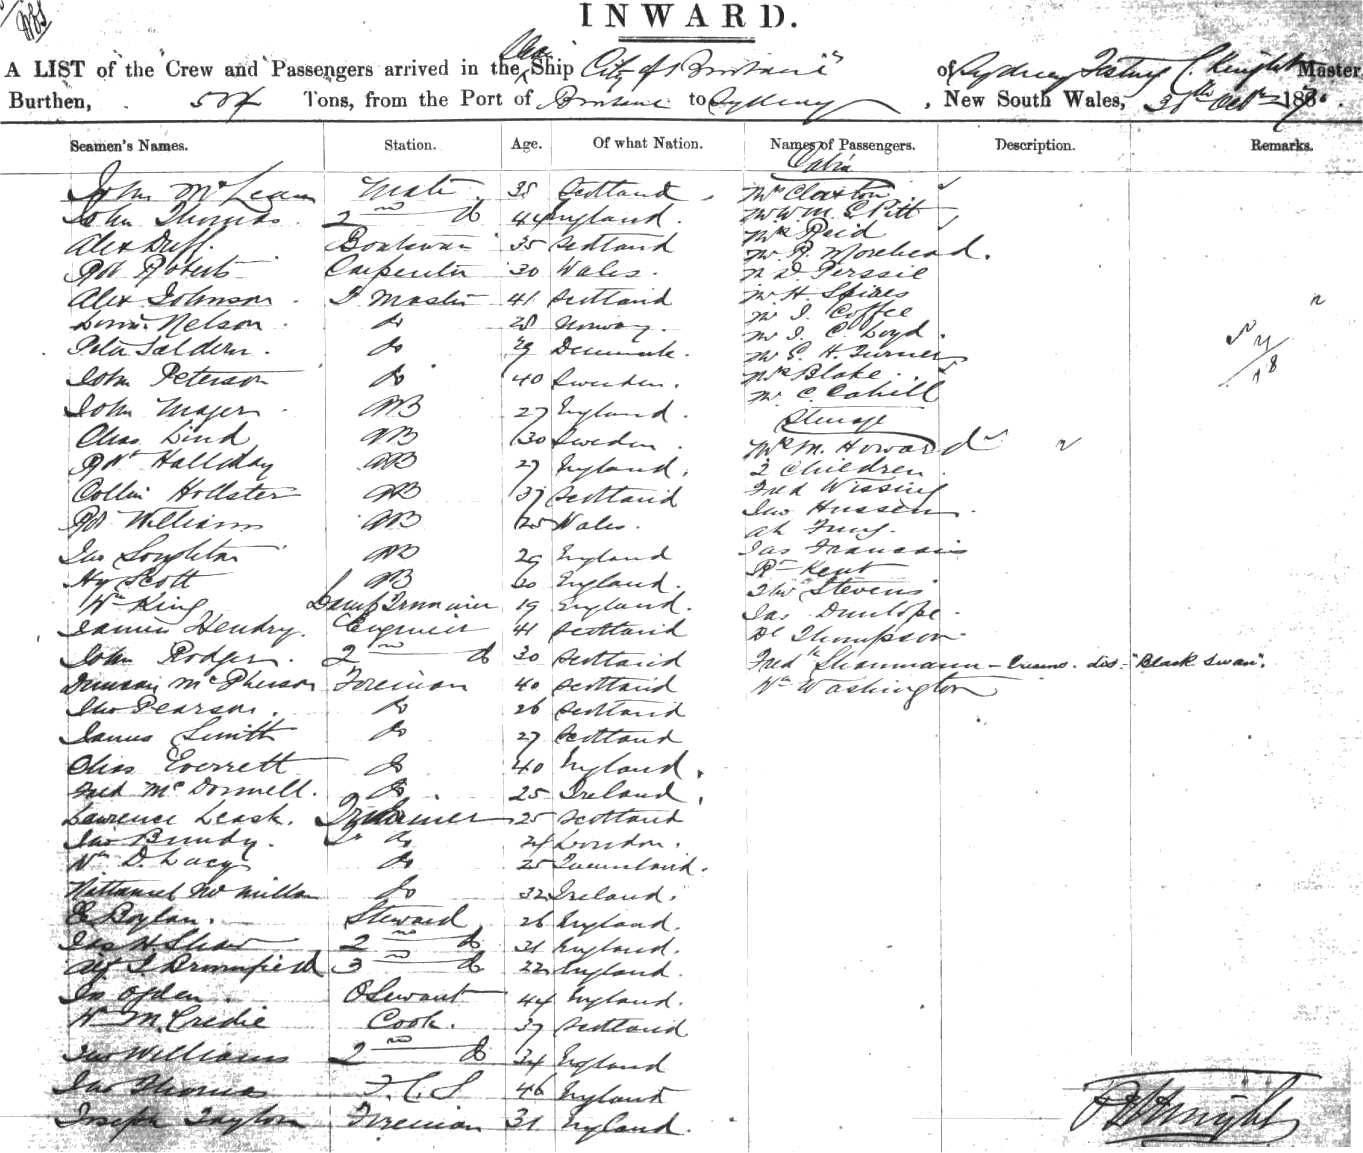 INWARD.
A LIST of the Crew and Passengers arrived in the Ship City of Brisbane of Sydney Knight Master
Burthen, 504 Tons, from the Port of Brisbane to Sydney, New South Wales, Octr 187
Seamen's Names. Station. Age. Of what Nation. Names of Passengers. Description. Remarks.
Cabin
John McLean Mate 35 Scotland Claxton
John Thomas 2nd do 44 England Mr W. M. E Pitt
Alex Duff Boatswain 35 Scotland Reid
Robt Roberts Carpenter 30 Wales. Mr R. Morehead.
Alex Johnson 41 Scotland Mr H. Spires
Nelson do 28 Norway. Mr J. Coffee
Peter do 29 Denmark. Mr J. C. Loyd.
John Peterson do 40 Sweden. H Turner
Blake
Mr C. Cahill
John Mayer AB 27 England. Steerage
Chas Lind AB 30 Sweden M. Howard
Robt Halliday AB 27 England. 2 Children.
Collin Hollster AB 37 Scotland Fred Wissing
Robt Williams AB 25 Wales. Jno Hussen.
Ah Fung.
Jno AB 29 England Jas Francais
Hy Scott AB England. Kent
Wm King Lamp Trimmer 19 England. Stevens
James Hendry. Engineer 41 Scotland Jas Dunlope.
John Rodger. 2nd do 30 Scotland Thompson
Fred Shanmann - Crews. dis- "Black Swan".
Duncan McPherson Foreman 40 Scotland Wm Washington
Jno Pearson. do 26 Scotland
James Smith do 27 Scotland
Chas Everrett do 40 England.
Fred McDonnell. do 25 Ireland.
Lawrence Leask. Trimmer 25 Scotland
Jno Bundy. do 24 London.
Wm D. Lacy do 25 Queensland.
Nathaniel McMillan do 32 Ireland.
E Boylan. Steward 26 England.
Jas H. Shaw 2nd do England.
Alf J. Broomfield 3rd do 22 England.
Jn Ogden 44 England.
Wm McCredie Cook. 37 Scotland
Jno Williams 2nd do 34 England
Jno Thomas 46 England
Joseph Taylor Fireman 31 England.
Knight